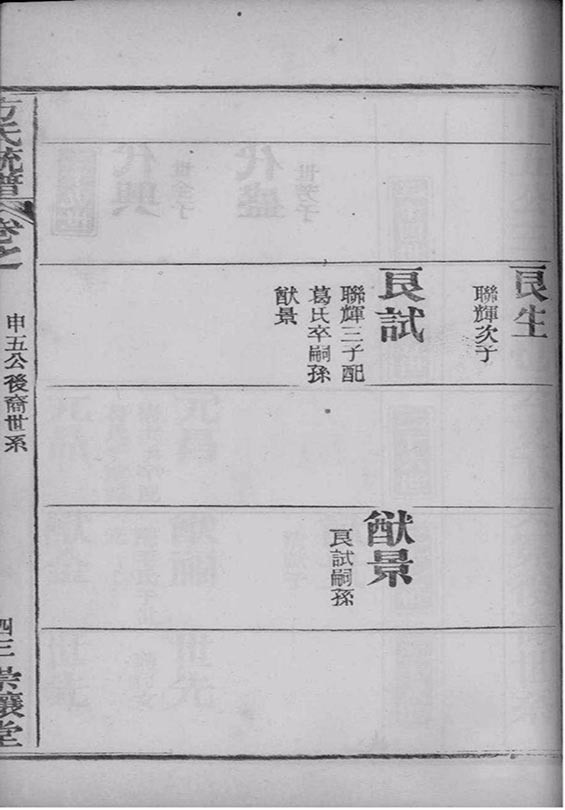 良生
聯輝次子
良試
聯輝三子配
葛氏卒嗣孫
猷景
猷景
良試嗣孫
方氏統譜 卷之一
申五公後裔世系
四三
崇讓堂